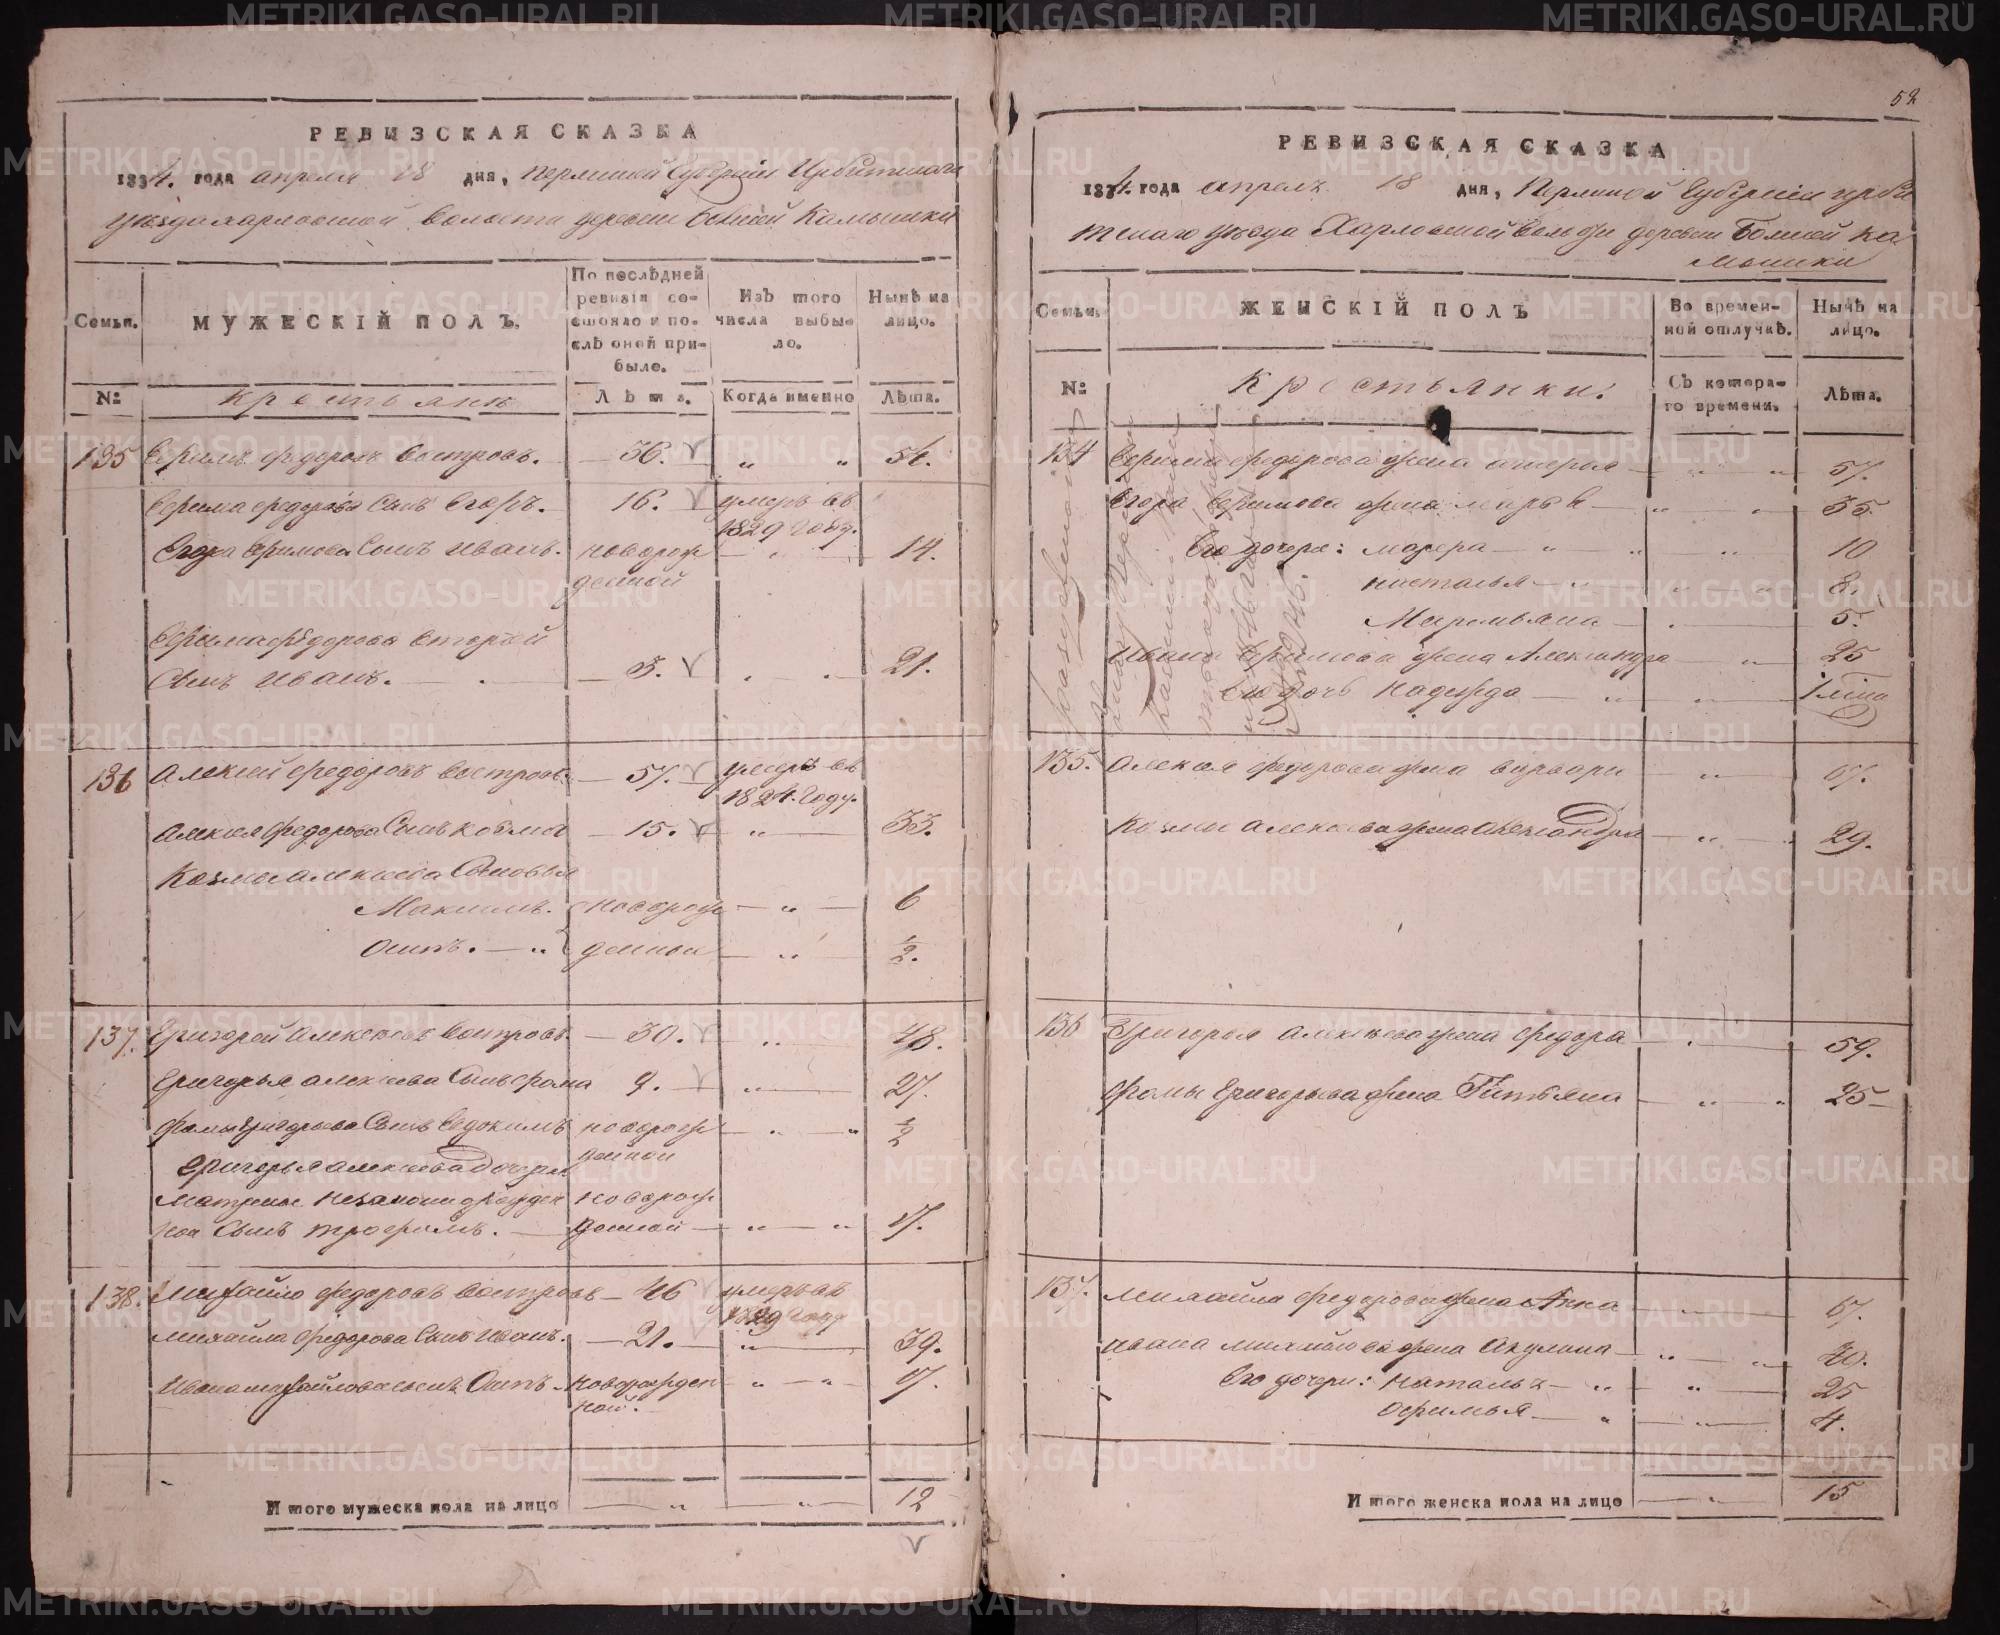 РЕВИЗСКАЯ СКАЗКА
1834. года апреля 18 дня, Пермской Губернии Ирбитскаго
уѣзда харловской волости деревни Камышки
Семьи.
МУЖЕСКІЙ ПОЛЪ.
По послѣдней ревизіи состояло и послѣ оной прибыло.
Изъ того числа выбыло.
Нынѣ на лицо.
№
Крестьяне
Лѣта.
Когда именно
Лѣта.
135 Ефимъ федоровъ Востровъ. — 36. „ „ 54.
Ефима федорова Сынъ Егоръ. 16. умеръ въ
1829 году.
Егора Ефимова Сынъ иванъ. новорож
денной 14.
Ефима федорова второй
Сынъ иванъ. — 5. 21.
136 алексей федоровъ востровъ. — 57. умеръ въ
1824. году.
алексея федорова Сынъ козма — 15. „ 33.
Козмы алексеева Сыновья
Максимъ. новорож — „ — 6
осипъ. — „ денныи — „ ½.
137. Григорей алексеевъ востровъ. — 30. „ 48.
Григорья алексеева Сынъ фома 9. — „ 27.
фомы григорьева Сынъ Евдокимъ новорож — „ ½
денной
Григорья алексеева дочери
матрены незаконнорожден новорож
ной Сынъ трофимъ. — денной — „ — „ 17.
138. михайло федоровъ востровъ — 46 умеръ въ
1829 году
михайла федорова Сынъ иванъ. — 21. — „ — 39.
ивана михайлова сынъ Осипъ новорожден „ — „ 17.
ной.
Итого мужеска пола на лицо — „ — „ 12
52
РЕВИЗСКАЯ СКАЗКА
1834. года апреля 18 дня, Пермской Губернии ирби
тскаго уѣзда Харловской волости деревни Ка
мышки
Семьи.
ЖЕНСКІЙ ПОЛЪ
Во временной отлучкѣ.
Нынѣ на лицо.
№
Крестьянки.
Съ котораго времени.
Лѣта.
134 Ефима федорова жена — „ — „ 57.
Егора Ефимова жена марья — „ — „ 35
Его дочери: — „ — „ 10
наталья — 8.
— 5.
ивана Ефимова жена Александра — „ 25
Его дочь надежда — „ — „ 1 лѣта
135. алексея федорова жена варвара — „ — 67.
козмы алексеева жена александра — „ — 29.
136 Григорья алексеева жена федора — 59.
фомы Григорьева жена Татьяна — „ — „ 25
137. михайла федорова жена Анна — „ — 67.
ивана михайлова жена акулина — „ — „ 40.
Его дочери: наталья — „ — „ 25
офимья — „ — „ 4.
Итого женска пола на лицо — „ — 15
METRIKI.GASO-URAL.RU